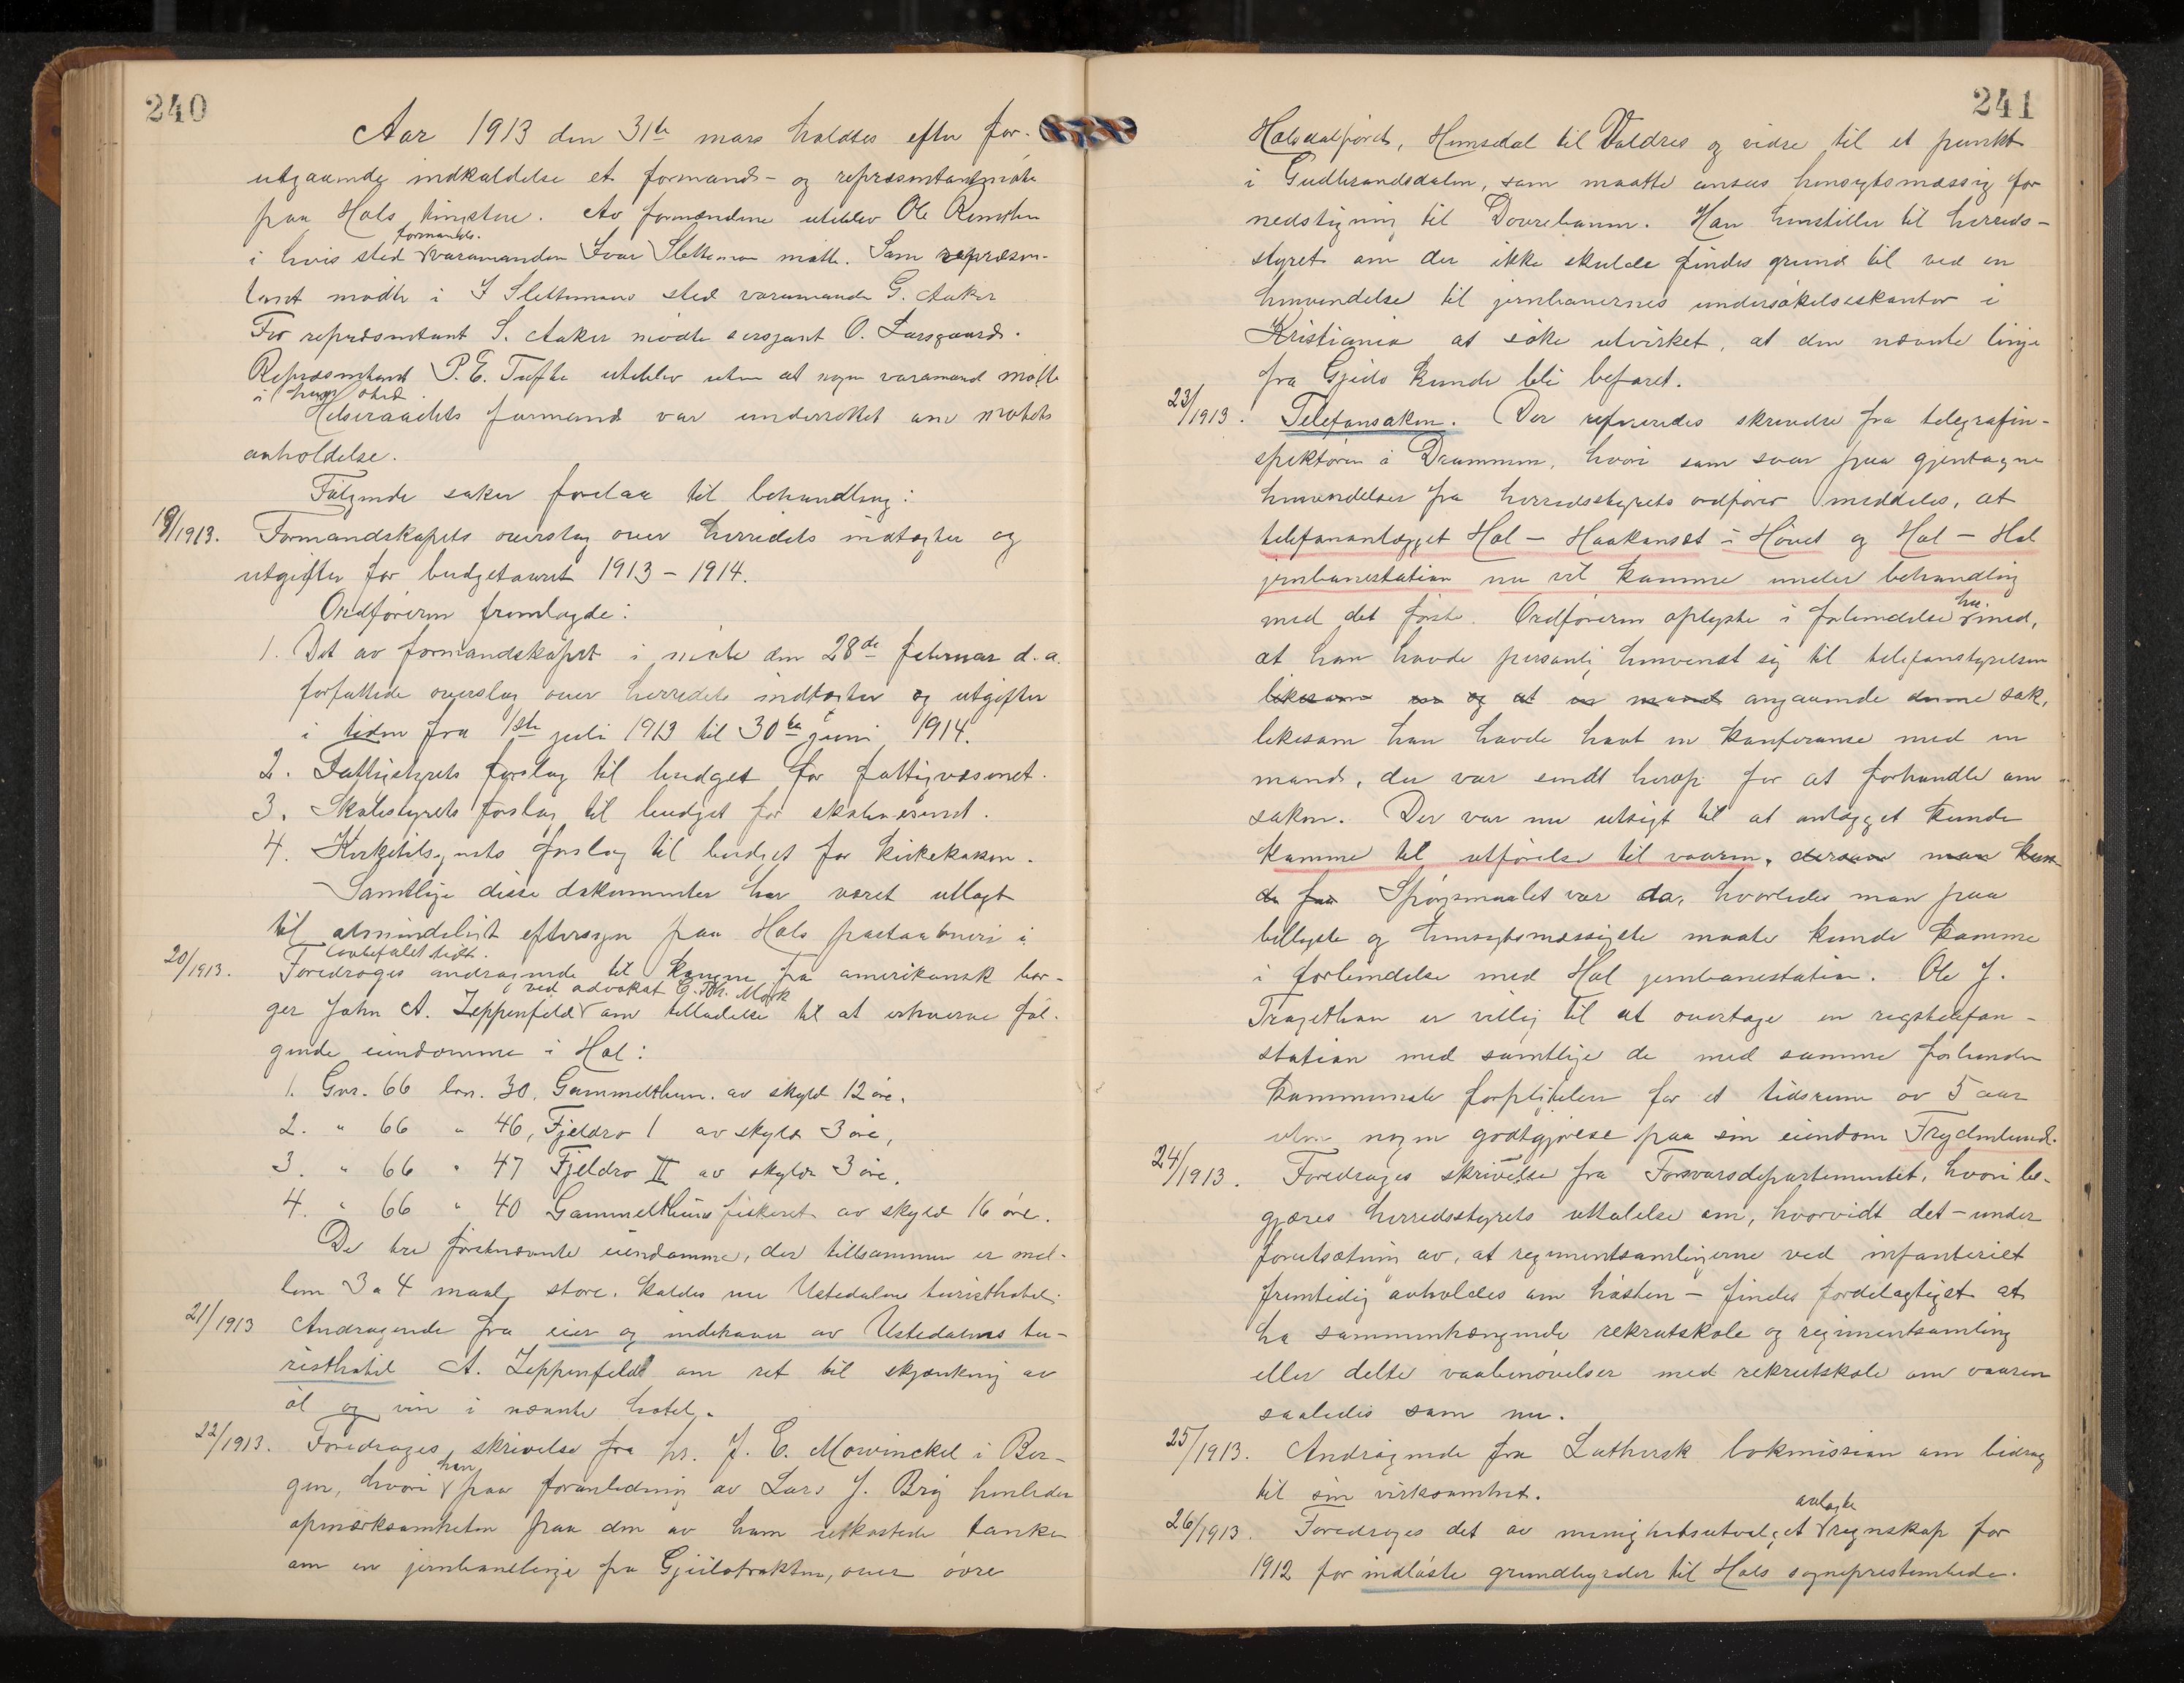 240
Aar 1913 den 31te mars holdtes efter for-
utgaaende indkaldelse et formands- og repræsentantmøte
paa Hols tingstue. Av formændene uteblev Ole
formands-
i hvis sted varamanden Ivar møtte. Som repræsen-
tant mødte i I Slettemoens sted varamand G. Aaker
For repræsentant S. Aaker mødte sersjant O. Larsgaard.
Repræsentant P. E. Tufte uteblev uten at nogen varamand møtte
i hans sted.
Helseraadets formand var underrettet om møtets
avholdelse.
Følgende saker forelaa til behandling:
19/1913. Formandskapets overslag over herredets indtægter og
utgifter for budgetaaret 1913 - 1914.
Ordføreren fremlagde:
1. Det av formandskapet i møte den 28de februar d. a.
forfattede overslag over herredets indtægter og utgifter
i tiden fra 1ste juli 1913 til 30te juni 1914.
2. Fattigstyrets forslag til budget for fattigvæsenet.
3. Skolestyrets forslag til budget for skolevæsenet.
4. Kirketilsynets forslag til budget for kirkekassen.
Samtlige disse dokumenter har været utlagt
til almindeligt eftersyn paa Hols postaabneri i
lovbefalet tid.
20/1913. Foredroges andragende til kongen fra amerikansk bor-
ved advokat C. Th. Mørk
ger John A. Zeppenfeld om tilladelse til at erhverve føl-
gende eiendomme i Hol:
1. Gnr. 66 bnr. 30, Gammelthun. av skyld 12 øre.
2. " 66 " 46, Fjeldro I av skyld 3 øre,
3. " 66 " 47 Fjeldro II av skyld 3 øre,
4. " 66 " 40 Gammelthuns fiskeret av skyld 16 øre.
De tre førstnævnte eiendomme, der tilsammen er mel-
lem 3 a 4 maal store, kaldes nu Ustedalens turisthotel.
21/1913 Andragende fra eier og indehaver av Ustedalens tu-
risthotel A. Zeppenfeldt om ret til skjænkning av
øl og vin i nævnte hotel.
22/1913. Foredroges skrivelse fra hr. J. E. Mowinckel i Ber-
han
gen, hvori paa foranledning av Lars J. Bry henleder
opmærksomheten paa den av ham utkastede tanke
om en jernbanelinje fra Gjeilotrakten, over øvre
241
Holsdalføret, Hemsedal til Valdres og vidre til et punkt
i Gudbrandsdalen, som maatte ansees hensigtsmæssig for
nedstigning til Dovrebanen. Han henstiller til herreds-
styret om der ikke skulde findes grund til ved en
henvendelse til jernbanernes undersøkelseskontor i
Kristiania at søke utvirket, at den nævnte linje
fra Gjeilo kunde bli befaret.
23/1913. Telefonsaken. Der refereredes skrivelse fra telegrafin-
spektøren i Drammen, hvori som svar paa gjentagne
henvendelser fra herredsstyrets ordfører meddeles, at
telefonanlægget Hol - Haakonset i Hovet og Hol - Hol
jernbanestation nu vil komme under behandling
her-
med det første. Ordføreren oplyste i forbindelse med,
at han havde personlig henvendt sig til telefonstyrelsen
likesom og at en mand angaaende denne sak,
likesom han havde havt en konferanse med en
mand, der var sendt herop for at forhandle om
saken. Der var nu utsigt til at anlægget kunde
komme til utførelse til vaaren, dersom man kun-
de faa Spørsmaalet var da, hvorledes man paa
billigste og hensigtsmæssigste maate kunde komme
i forbindelse med Hol jernbanestation. Ole J.
Trøgethon er villig til at overtage en rigstelefon-
station med samtlige de med samme forbundne
kommunale forpligtelser for et tidsrum av 5 aar
uten nogen godtgjørelse paa sin eiendom Frydenlund.
24/1913. Foredroges skrivelse fra Forsvarsdepartementet, hvori be-
gjæres herredsstyrets uttalelse om, hvorvidt det - under
forutsætning av, at regimentsamlingerne ved infanteriet
fremtidig avholdes om høsten - findes fordelagtigst at
ha sammenhængende rekrutskole og regimentsamling
eller delte vaabenøvelser med rekrutskole om vaaren
saaledes som nu.
25/1913. Andragende fra Luthersk bokmission om bidrag
til sin virksomhet.
avlagte
26/1913. Foredroges det av menighetsutvalget regnskap for
1912 for indløste grundbyrder til Hols sogneprestembede.